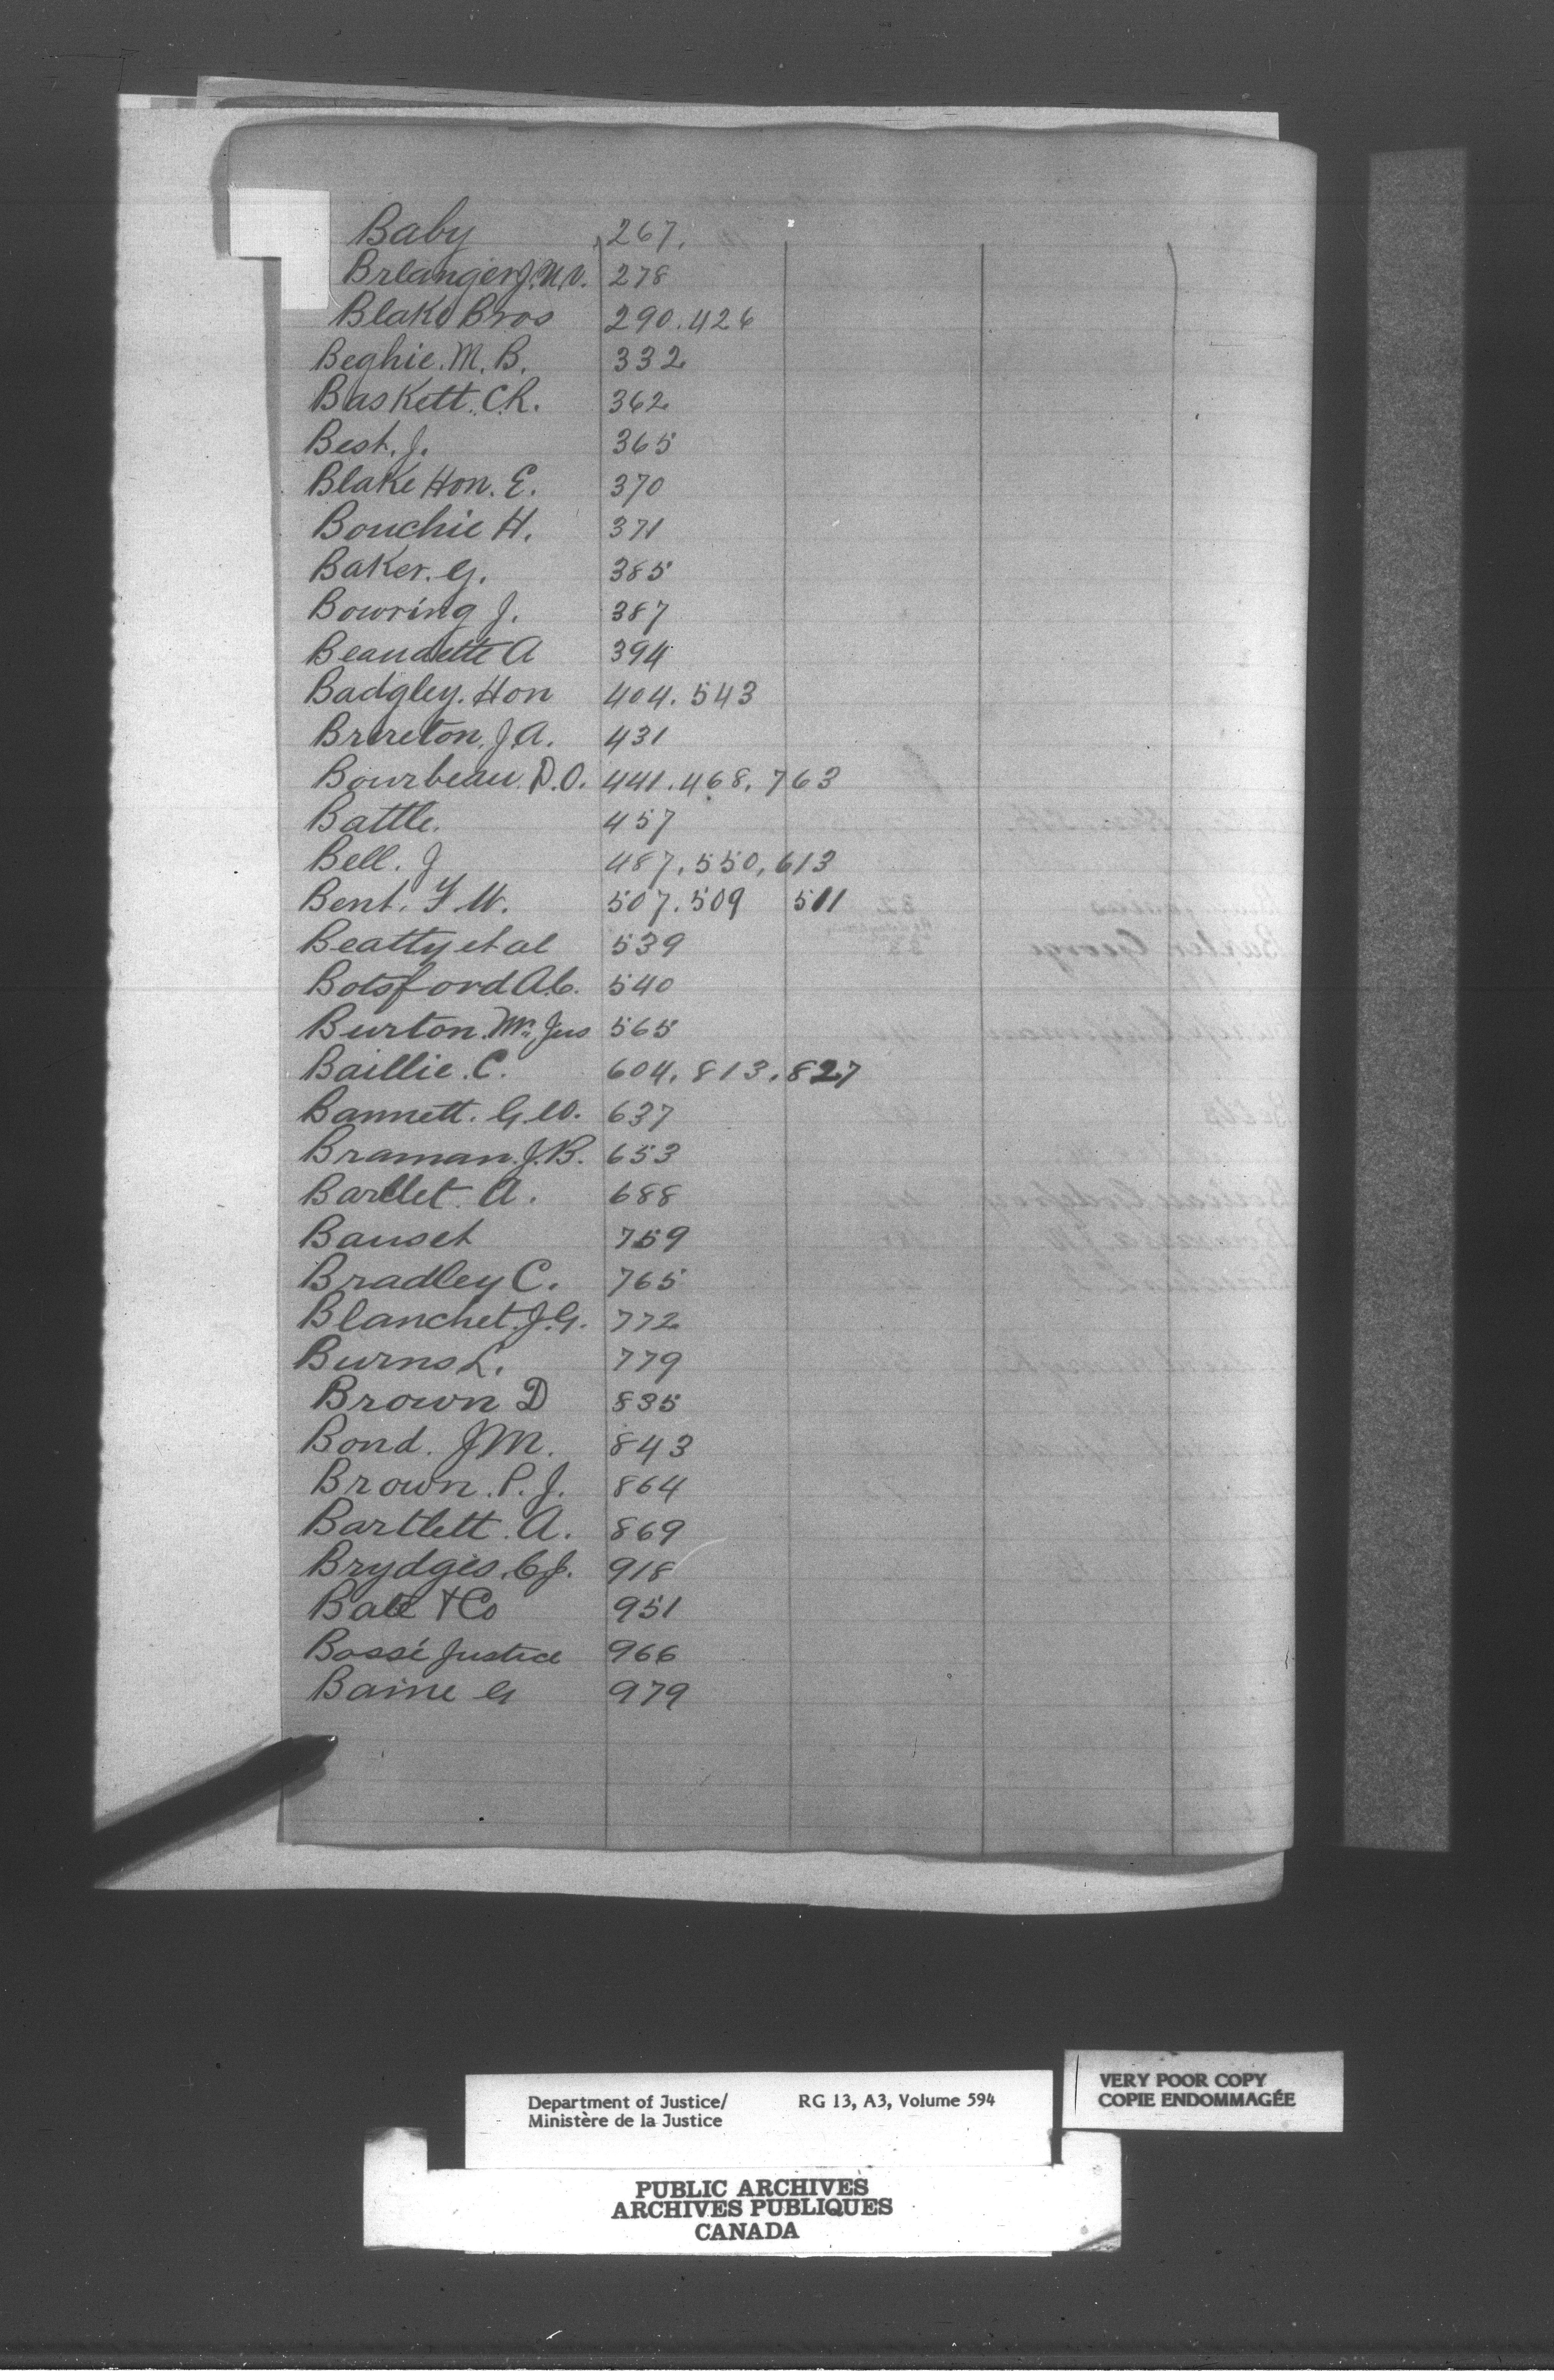 Baby 267.
Brlanger J.N.V. 278
Blake Bros 290. 426
Beghie. M. B. 332
Baskett. C.R. 362
Best. J. 365
Blake Hon. E. 370
Bouchie H. 371
Baker. G. 385
Bowring J. 387
Beaudette A 394
Badgley. Hon 404. 543
Brereton. J.A. 431
Bourbeau. D.O. 441. 468. 763
Battle. 457
Bell. J 487. 550. 613
Bent. F W. 507. 509 511
Beatty et al 539
Botsford A.C. 540
Burton. Mr. Jus 565
Baillie. C. 604. 813. 827
Bannett. G.W. 637
Braman. J.B. 653
Barllet. A. 688
Bauset 759
Bradley C. 765
Blanchet. J.G. 772
Burns L. 779
Brown D 835
Bond. J M. 843
Brown. P. J. 864
Bartlett. A. 869
Brydges. C J. 918
Bate & Co 951
Bossé Justice 966
Baine G 979
Department of Justice/ RG 13, A3, Volume 594
Ministère de la Justice
VERY POOR COPY
COPIE ENDOMMAGÉE
PUBLIC ARCHIVES
ARCHIVES PUBLIQUES
CANADA